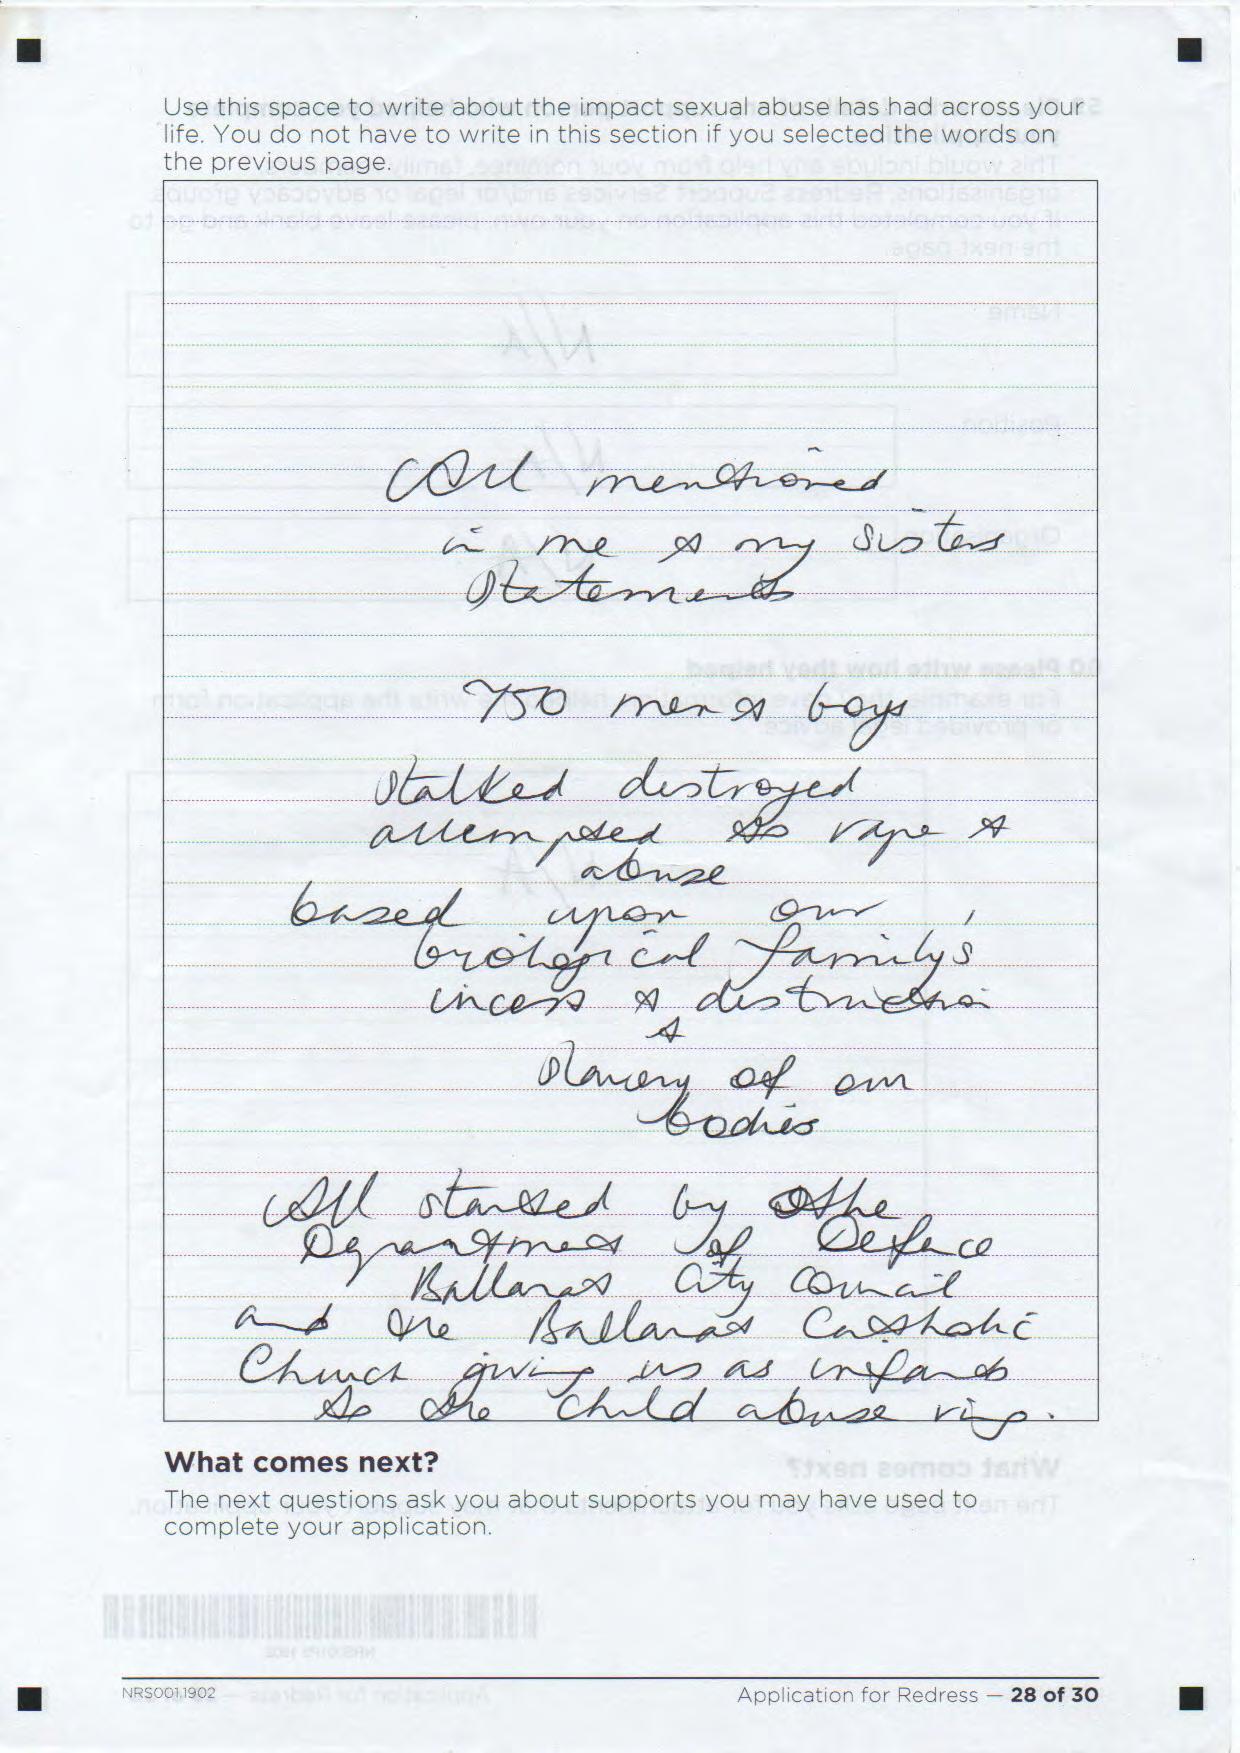 Use this space to write about the impact sexual abuse has had across your
life. You do not have to write in this section if you selected the words on
the previous page.
All mentioned
in me & my sisters
statements
750 men & boys
stalked destroyed
attempted to rape &
abuse
based upon our
biological family's
incest & destruction
&
slavery of our
bodies
All started by the
Department of Defence
Ballarat City Council
and the Ballarat Catholic
Church giving us as infants
to the child abuse ring.
What comes next?
The next questions ask you about supports you may have used to
complete your application.
NRS001.1902
Application for Redress — 28 of 30